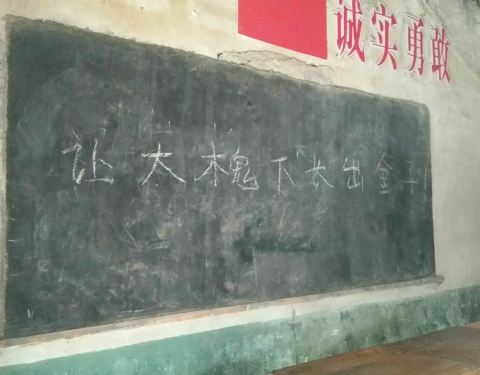 诚实勇敢
让大槐下长出金子!